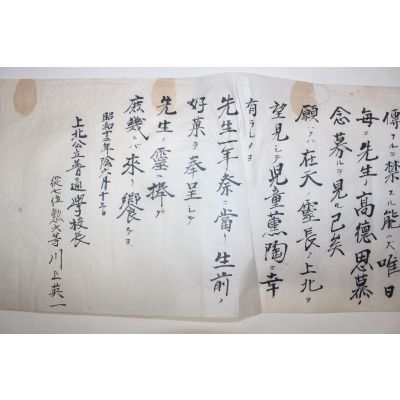 傳フルヲ禁スル能ハス唯日
毎ニ先生ノ高德思慕ノ
念募ヲ見ル已矣
願ハクハ在天ノ靈長ヘニ上北ヲ
望見シテ児童薫陶ニ幸
有ラシメヨ
先生一年祭ニ當リ生前ノ
好菓ヲ奉呈シテ
先生ノ靈ニ捧ク
庶幾ハ來リ饗ケヨ
昭和十三年陰六月十三日
上北公立普通學校長
從七位勲六等 川上英一